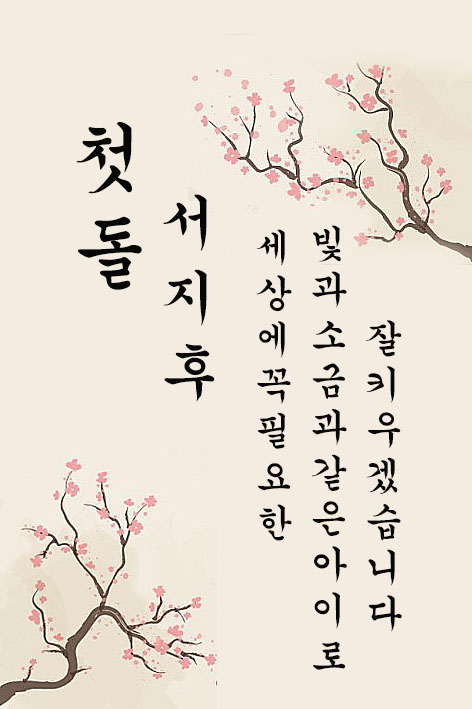 첫돌
서지후
세상에꼭필요한
빛과소금과같은아이로
잘키우겠습니다